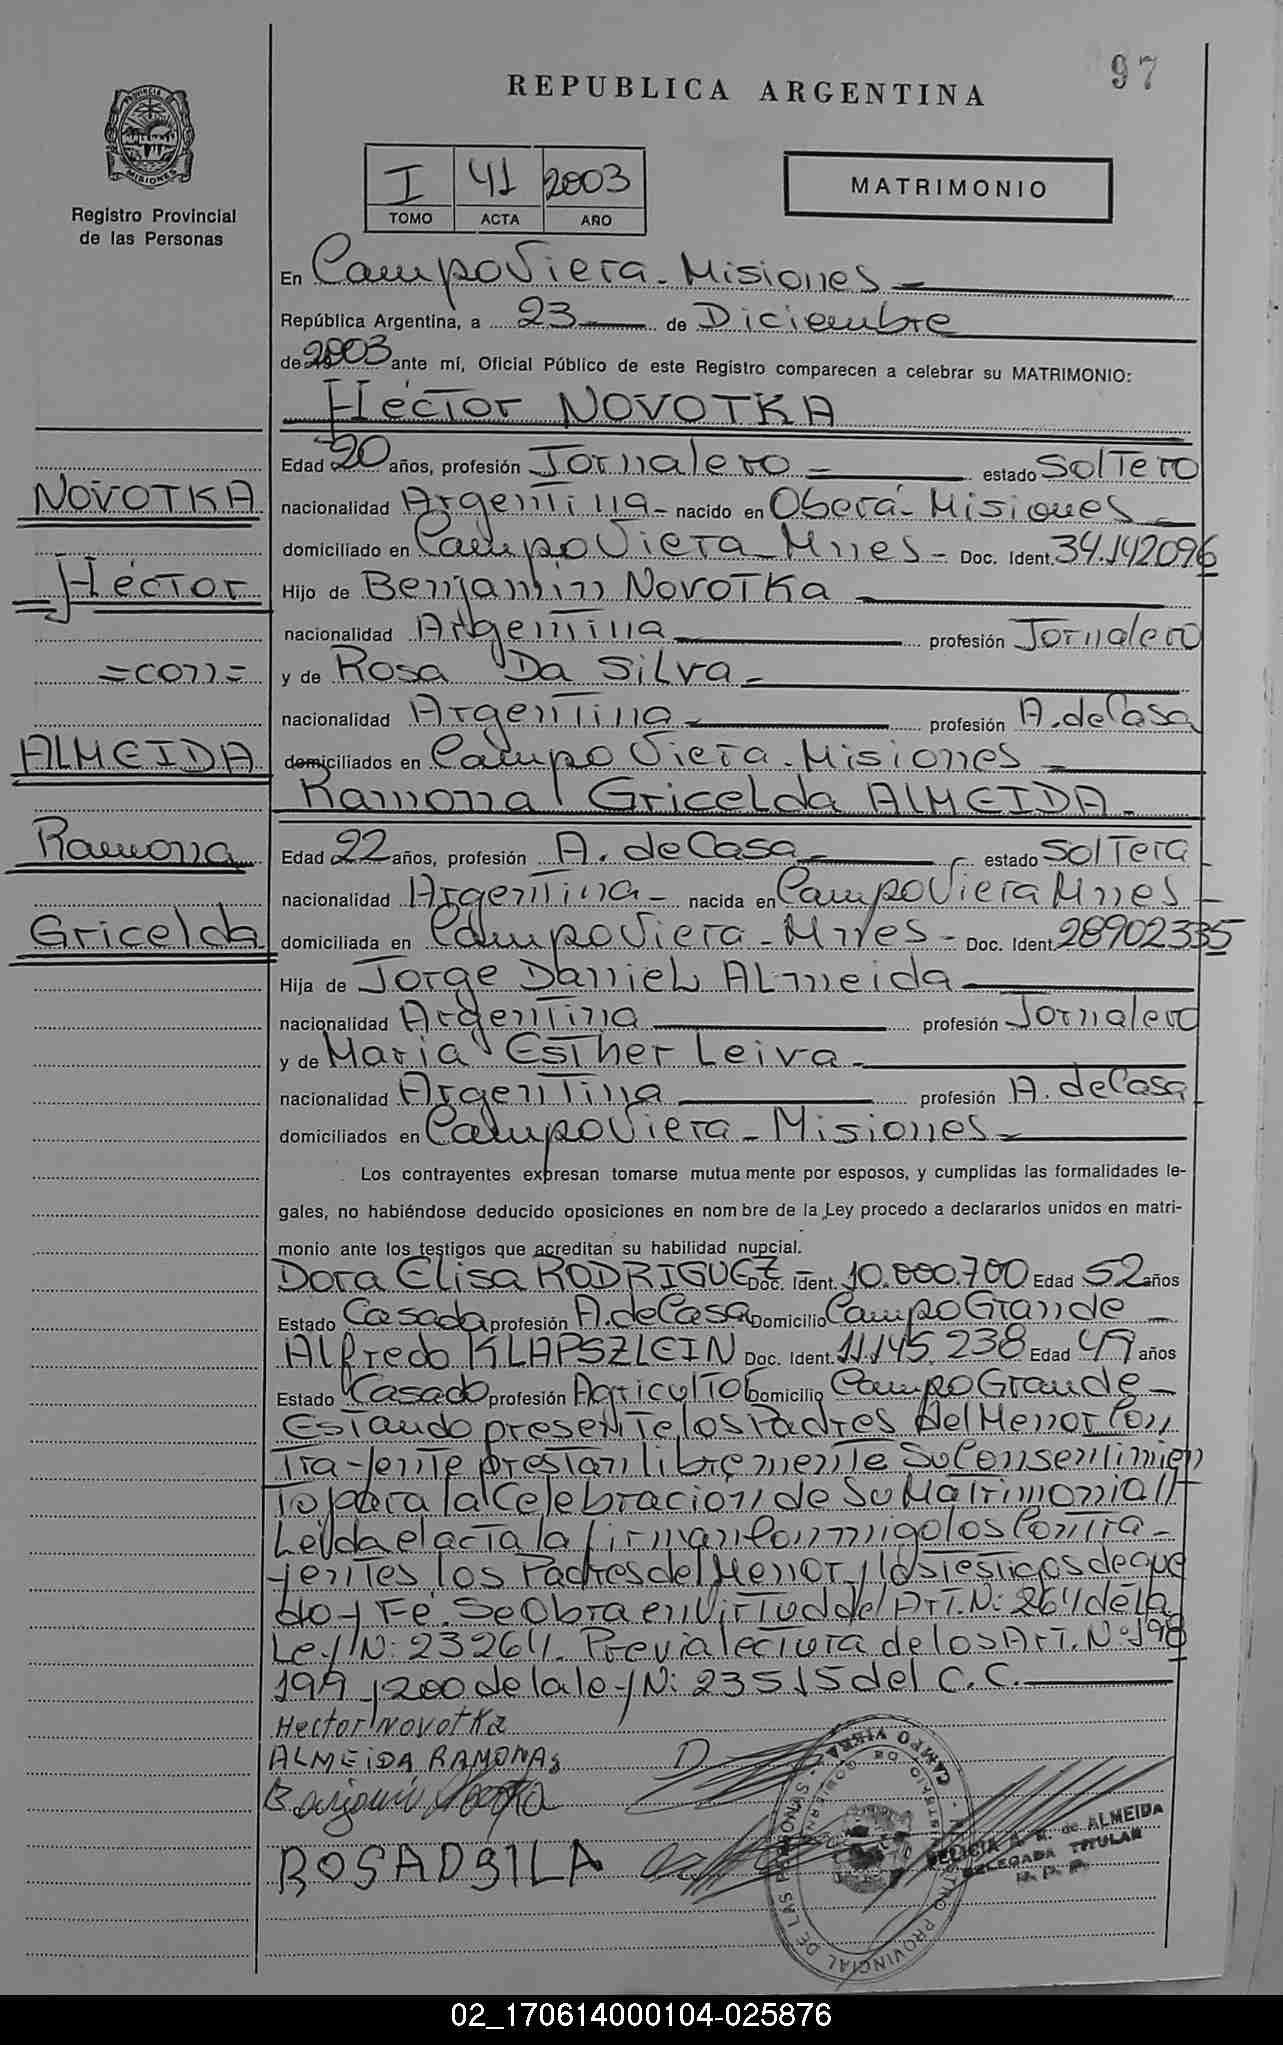 97
REPUBLICA ARGENTINA
PROVINCIA DE MISIONES
Registro Provincial
de las Personas
I 41 2003
TOMO ACTA AÑO
MATRIMONIO
En Campo Viera - Misiones
República Argentina, a 23 de Diciembre
de 2003 ante mí, Oficial Público de este Registro comparecen a celebrar su MATRIMONIO:
Héctor NOVOTKA
Edad 20 años, profesión Jornalero estado Soltero
nacionalidad Argentina - nacido en Oberá - Misiones
domiciliado en Campo Viera - Mnes - Doc. Ident. 34.142096
Hijo de Benjamín Novotka
nacionalidad Argentina profesión Jornalero
y de Rosa Da Silva
nacionalidad Argentina profesión A. de Casa
domiciliados en Campo Viera - Misiones
NOVOTKA
Héctor
=con=
ALMEIDA
Ramona
Gricelda
Ramona Gricelda ALMEIDA
Edad 22 años, profesión A. de Casa estado Soltera
nacionalidad Argentina - nacida en Campo Viera Mnes
domiciliada en Campo Viera - Mnes - Doc. Ident. 28902335
Hija de Jorge Daniel Almeida
nacionalidad Argentina profesión Jornalero
y de Maria Esther Leiva
nacionalidad Argentina profesión A. de Casa
domiciliados en Campo Viera - Misiones
Los contrayentes expresan tomarse mutuamente por esposos, y cumplidas las formalidades le-
gales, no habiéndose deducido oposiciones en nombre de la Ley procedo a declararlos unidos en matri-
monio ante los testigos que acreditan su habilidad nupcial.
Dora Elisa RODRIGUEZ Doc. Ident. 10.000.700 Edad 52 años
Estado Casada profesión A. de Casa Domicilio Campo Grande
Alfredo KLAPSZLEIN Doc. Ident. 11.145.238 Edad 49 años
Estado Casado profesión Agricultor Domicilio Campo Grande
Estando presente los Padres del Menor Con
Trayente prestan libremente Su Consentimien
To para la Celebración de Su Matrimonio//
Leída el acta la firman conmigo los Contra-
yentes, los Padres del Menor y los testigos de que
doy Fe. Se Obra en Virtud del Art. N: 264 de la
Ley N: 23264. Previa lectura de los Art. Nº 198
199 y 200 de la ley N: 23515 del C.C.
Hector Novotka
ALMEIDA RAMONA
Benjamín Novotka
ROSADSILA
REGISTRO PROVINCIAL DE LAS PERSONAS - CAMPO VIERA
MINISTERIO DE GOBIERNO
A. R. de ALMEIDA
DELEGADA TITULAR
R. P. P.
02_170614000104-025876